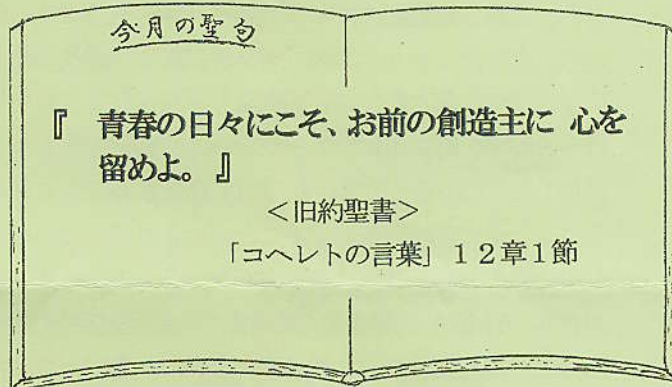 今月の聖句
『 青春の日々にこそ、お前の創造主に 心を
留めよ。 』
＜旧約聖書＞
「コヘレトの言葉」 １２章１節